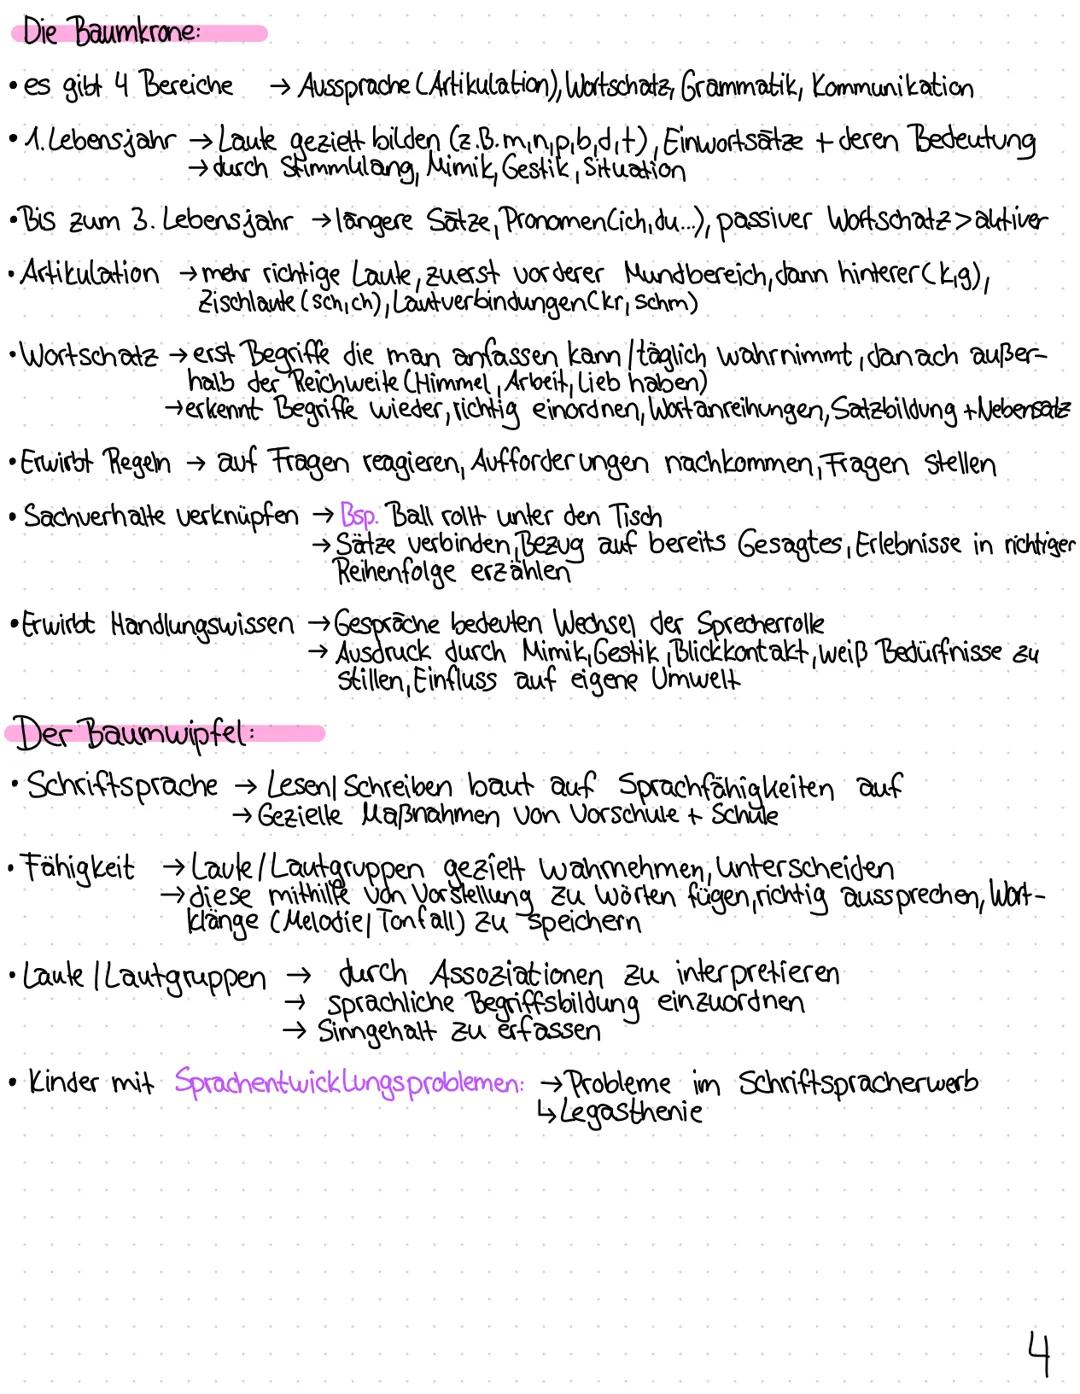 Die Baumkrone:
• es gibt 4 Bereiche → Aussprache (Artikulation), Wortschatz, Grammatik, Kommunikation
• 1. Lebensjahr → Laute gezielt bilden (z.B. m,n,p,b,d,t), Einwortsätze + deren Bedeutung
→ durch Stimmklang, Mimik, Gestik, Situation
• Bis zum 3. Lebensjahr → längere Sätze, Pronomen (ich, du...), passiver Wortschatz > aktiver
• Artikulation → mehr richtige Laute, zuerst vorderer Mundbereich, dann hinterer (k,g),
Zischlaute (sch, ch), Lautverbindungen (kr, schm)
• Wortschatz → erst Begriffe die man anfassen kann / täglich wahrnimmt, danach außer-
halb der Reichweite (Himmel, Arbeit, Lieb haben)
→ erkennt Begriffe wieder, richtig einordnen, Wortanreihungen, Satzbildung + Nebensatz
• Erwirbt Regeln → auf Fragen reagieren, Aufforderungen nachkommen, Fragen stellen
• Sachverhalte verknüpfen → Bsp. Ball rollt unter den Tisch
→ Sätze verbinden, Bezug auf bereits Gesagtes, Erlebnisse in richtiger
Reihenfolge erzählen
• Erwirbt Handlungswissen → Gespräche bedeuten Wechsel der Sprecherrolle
→ Ausdruck durch Mimik, Gestik, Blickkontakt, weiß Bedürfnisse zu
stillen, Einfluss auf eigene Umwelt
Der Baumwipfel:
• Schriftsprache → Lesen/Schreiben baut auf Sprachfähigkeiten auf
→ Gezielle Maßnahmen von Vorschule + Schule
• Fähigkeit → Laute/Lautgruppen gezielt wahrnehmen, unterscheiden
→ diese mithilfe von Vorstellung zu Wörten fügen, richtig aussprechen, Wort-
klänge (Melodie/Tonfall) zu speichern
• Laute/Lautgruppen → durch Assoziationen zu interpretieren
→ sprachliche Begriffsbildung einzuordnen
→ Sinngehalt zu erfassen
• Kinder mit Sprachentwicklungsproblemen: → Probleme im Schriftspracherwerb
↳ Legasthenie
4